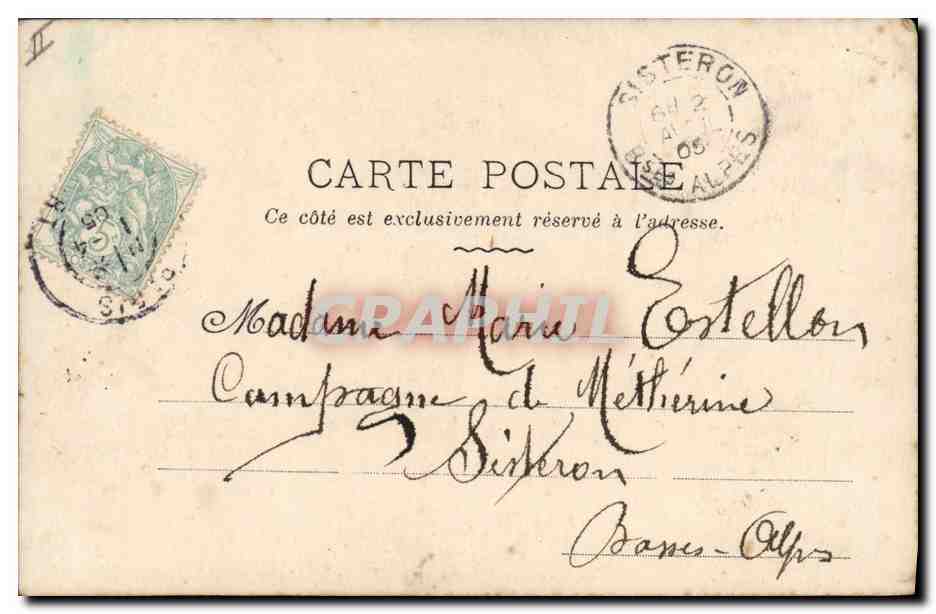 II
SISTERON
Bses ALPES
05
CARTE POSTALE
Ce côté est exclusivement réservé à l'adresse.
GRAPHIL
Madame Marie Estellon
Campagne de Méthérine
Sisteron
Basses-Alpes